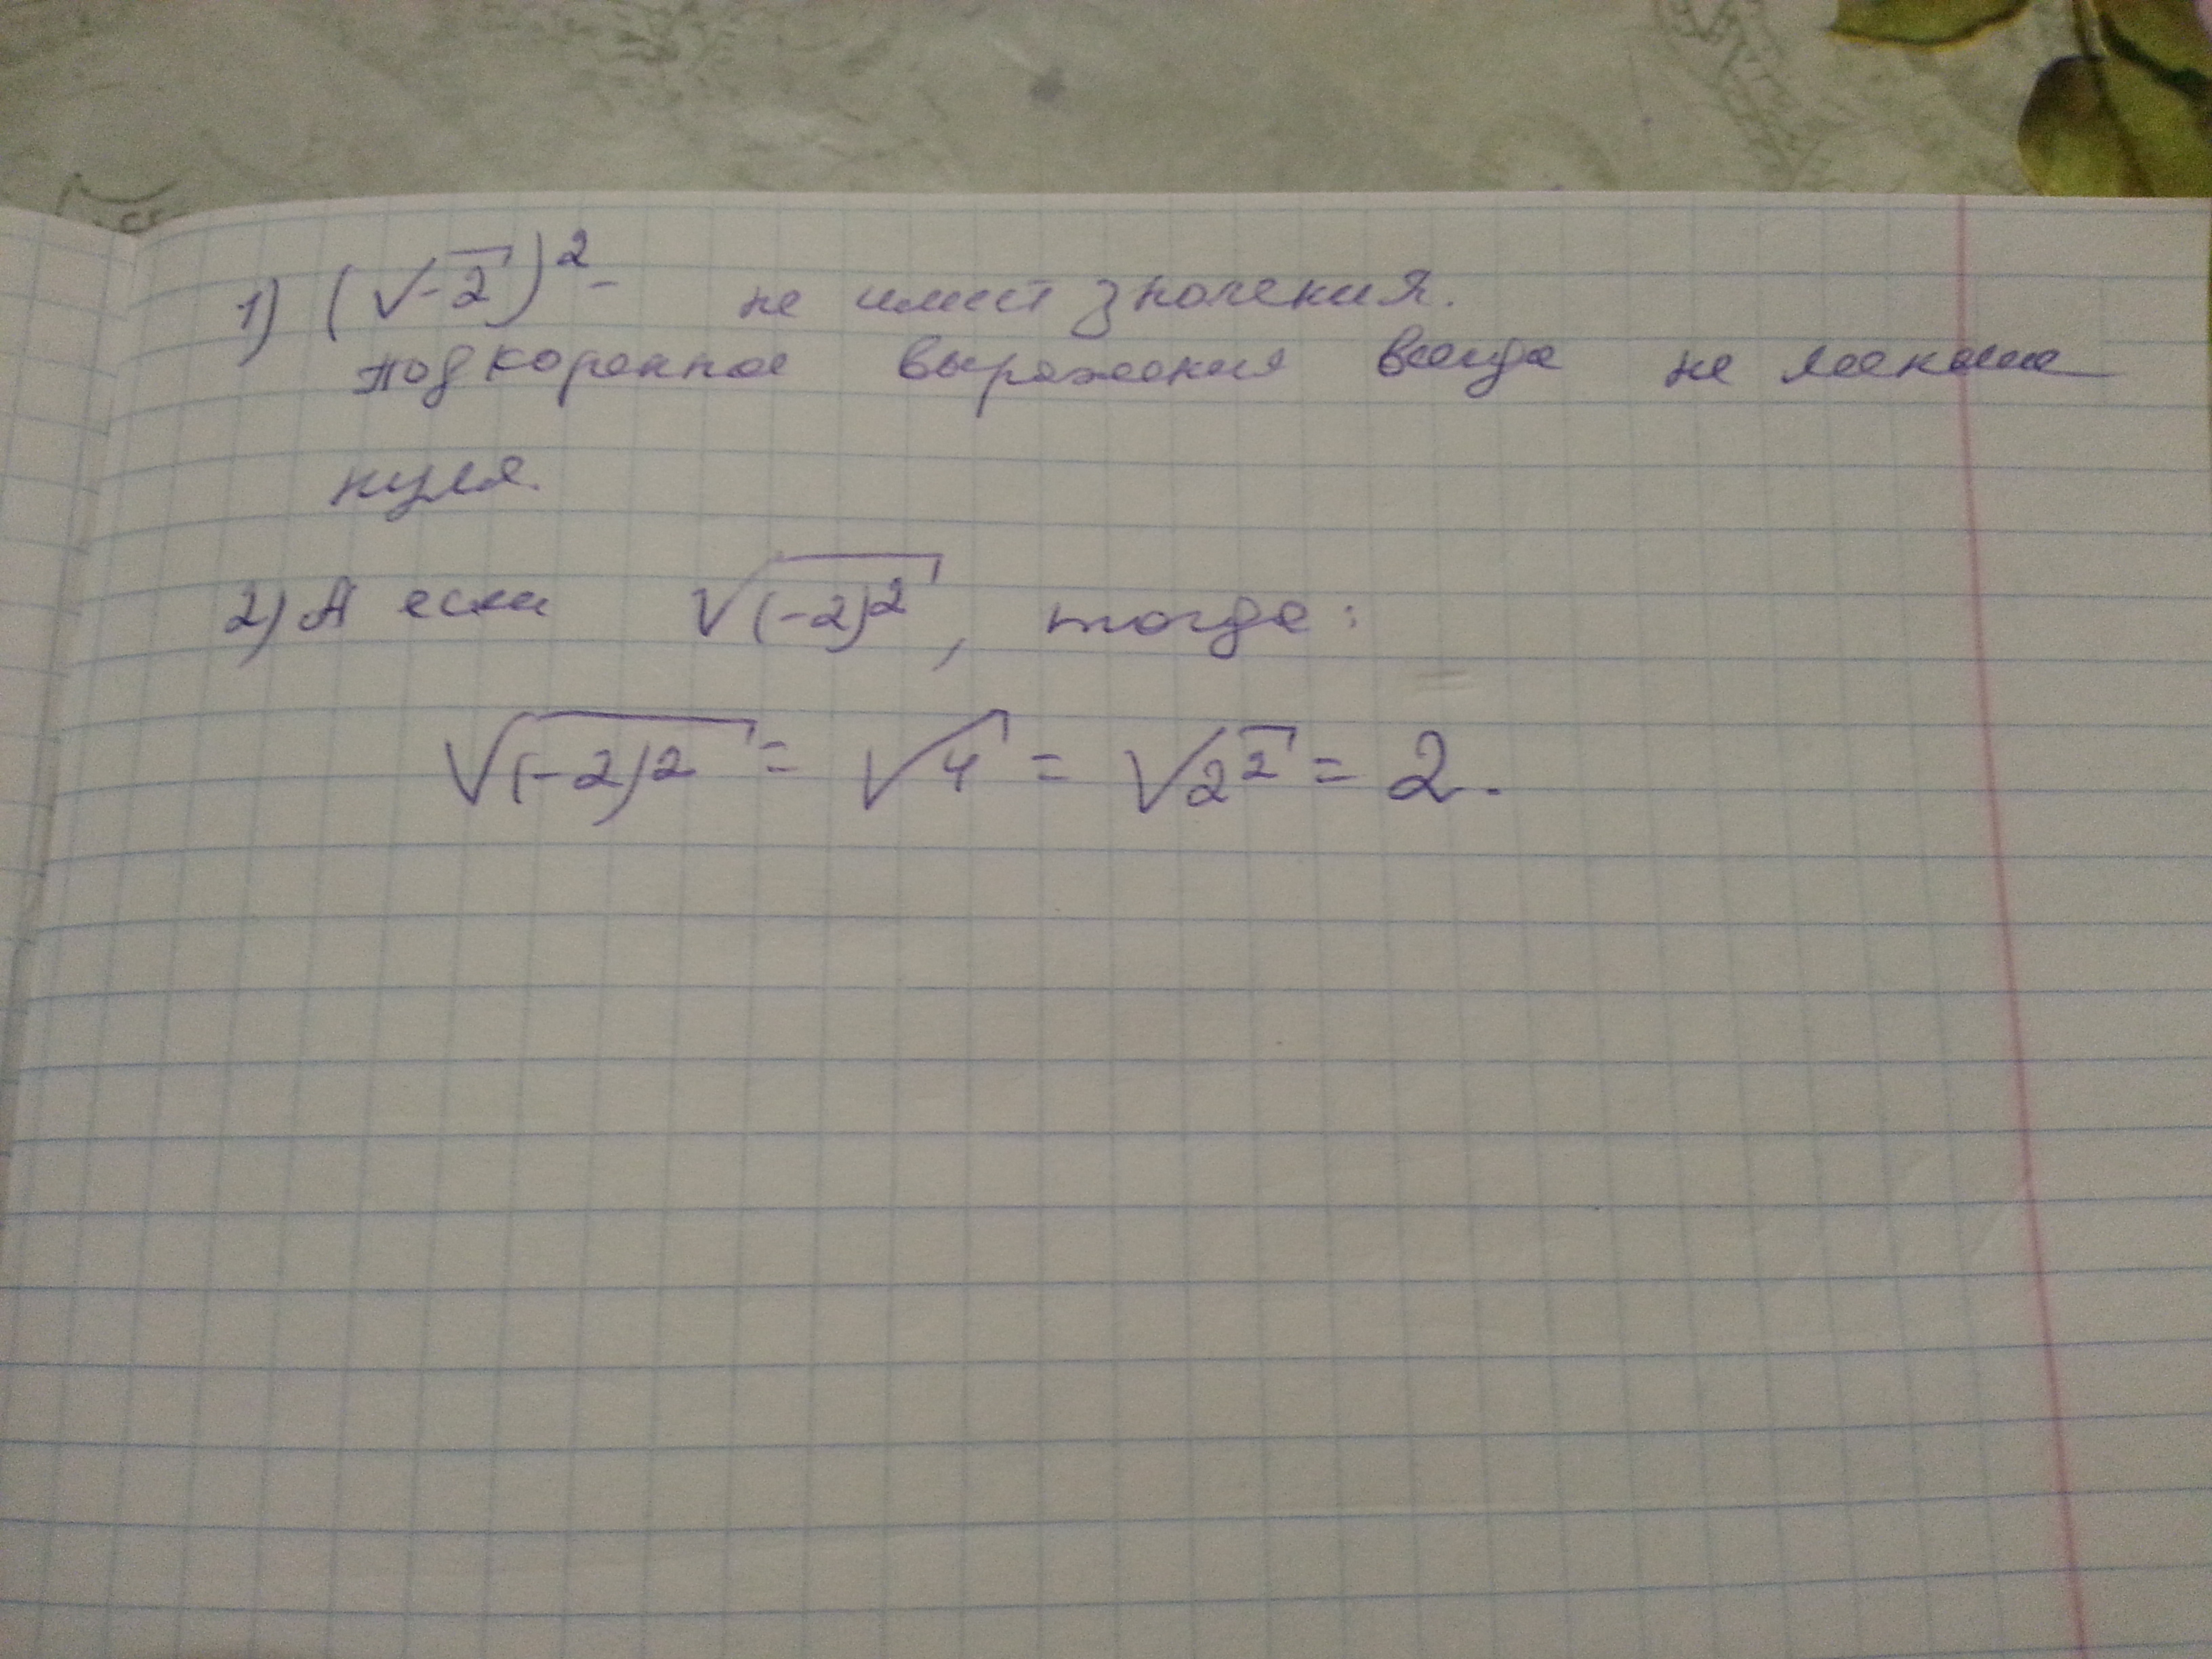 1) (√-2)² - не имеет значения.
подкоренное выражения всегда не меньше
нуля.
2) А если √(-2)², тогда:
√(-2)² = √4 = √2² = 2.